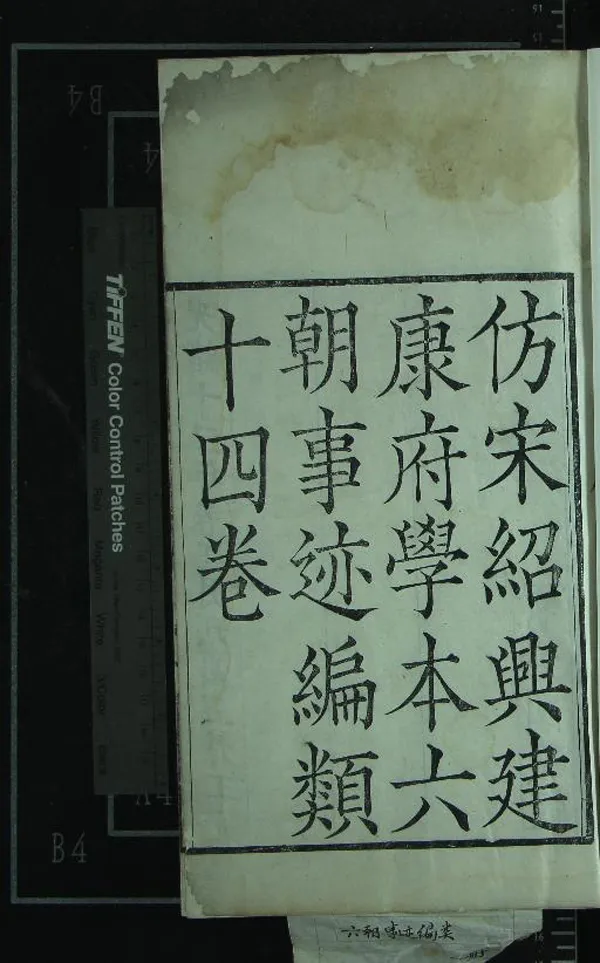 仿宋紹興建
康府學本六
朝事迹編類
十四卷
TIFFEN Color Control Patches
B4
B4
六朝事迹編类